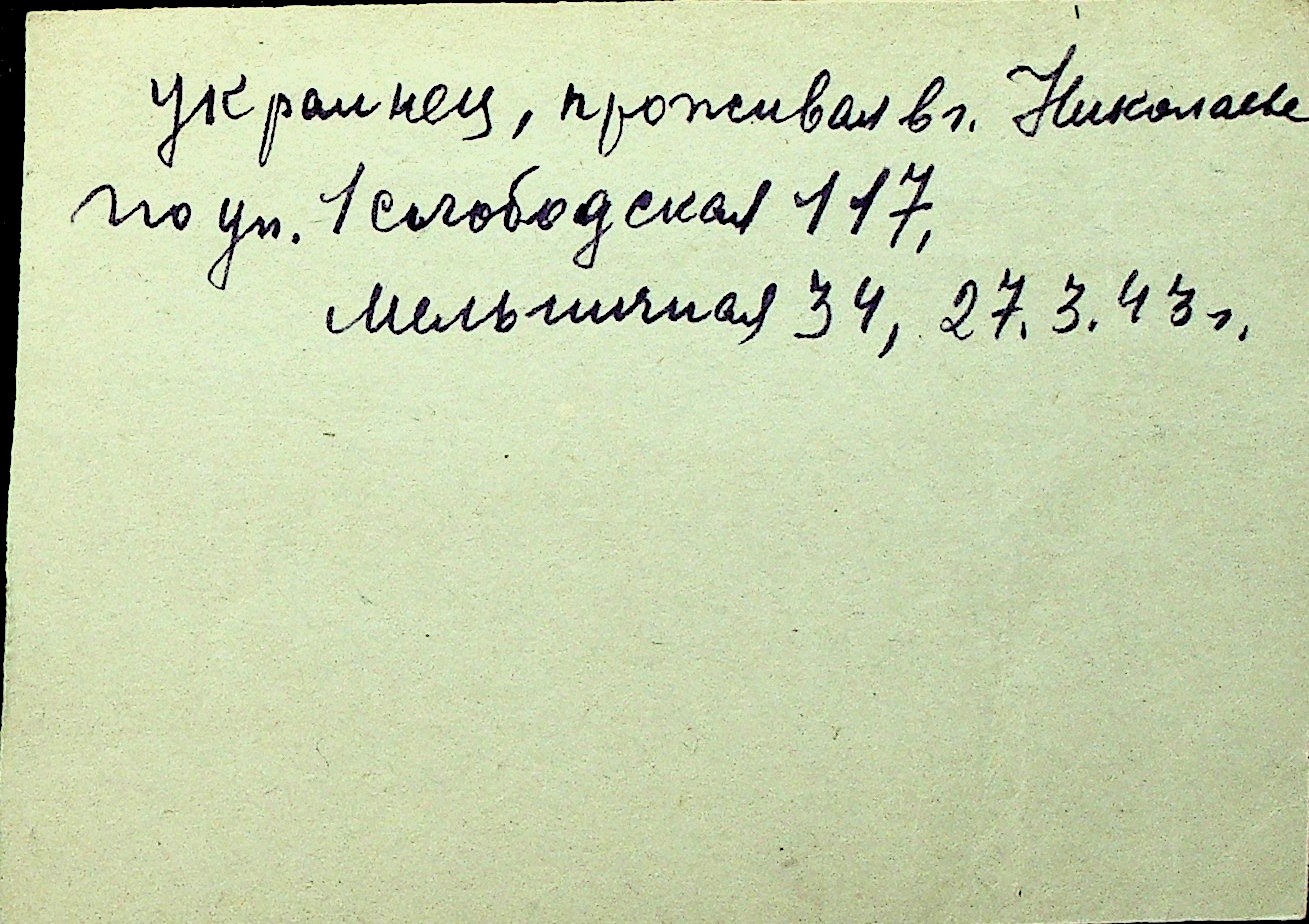 украинец, проживал в г. Николаеве
по ул. 1 Слободская 117,
Мельничная 34, 27.3.43 г.